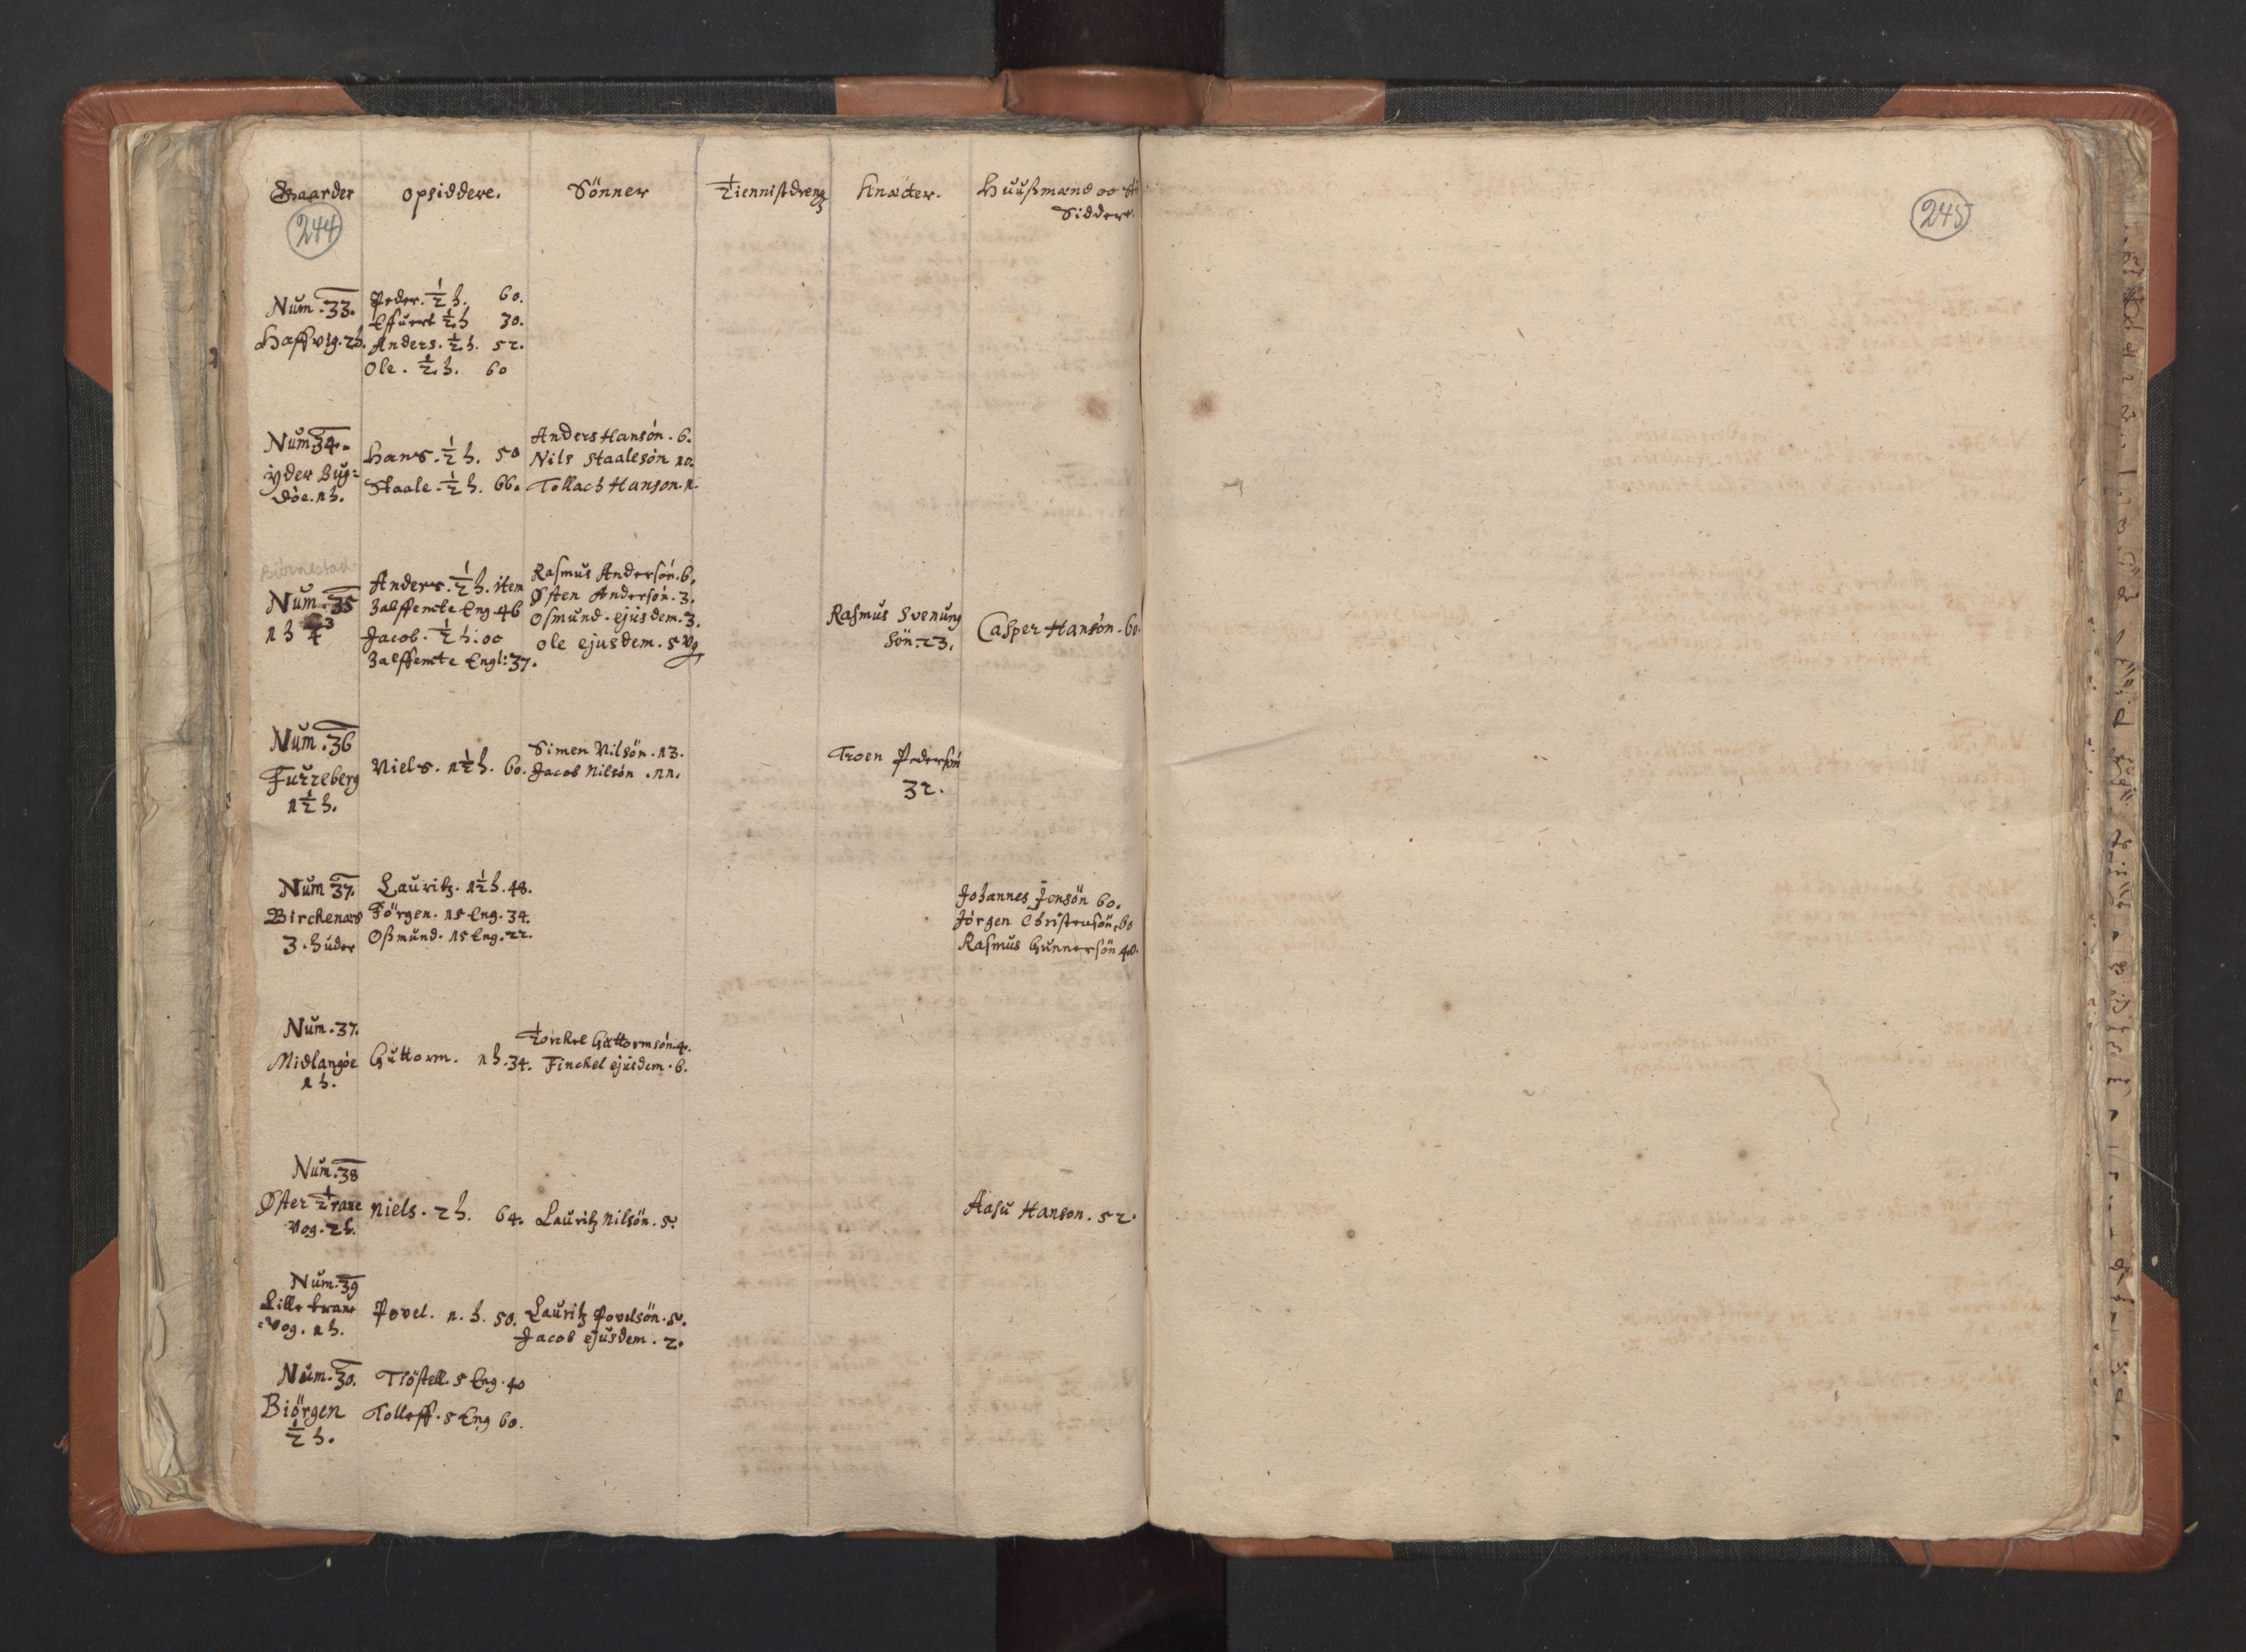 Gaarder opsiddere. Sönner Tiennistdreng Knæcter. Huußmænd oc
Siddere.
244
245
Num. 33. Peder. ½ h. 60.
Effuert ½ h 30.
Haffvig. 2 h. Anders. ½ h. 52.
Ole. ½ h. 60
Num 34. Hans. ½ h. 50 Anders Hansön. 6.
Nils Staalesön 10.
yder Bug=
döe. 1 h. Staale. ½ h. 66. Tollach Hanson. 1.
Biörnestad
Num. 35 Anders. ½ h. item Rasmus Andersön. 6.
Østen Andersön. 3.
Zalffemte Eng. 46 Osmund. ejusdem. 3. Rasmus Svenung
1 h Jacob. ½ h. oc ole ejusdem. 5 Sön. 23. Casper Hansön. 60.
Zalffemte Engl: 37.
Num. 36 Simen Nilsön. 13. Troen Pedersön
Furreberg Niels. 1½ h. 60. Jacob Nilsön. 11. 32.
1½ h.
Num 37. Lauritz. 1½ h. 48. Johannes Jonsön 60.
Birckenæs Förgen. 15 Eng. 34. Jörgen Christensön. 60
3. huder Oßmund. 15 Eng. 22. Rasmus Gunnersön 40.
Num. 37. Torckel Guttormsön. 4.
Midlangöe Guttorm. 1 h. 34. Finckel ejusdem. 6.
1 h.
Num. 38
Øster Trane Niels. 2 h. 64. Lauritz Nilsön. 5. Aasu Hanson. 52.
Vog. 2 h.
Num. 39
Lille trane Povel. 1. h. 50. Lauritz Povelsön. 5.
=Vog. 1 h. Jacob ejusdem. 2.
Num. 30. Tiöstell. 5 Eng. 40
Biörgen Tolleff. 5 Eng 60.
½ h.